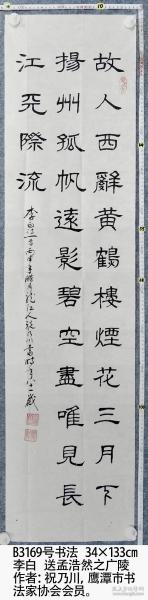 故人西辭黃鶴樓煙花三月下
揚州孤帆遠影碧空盡唯見長
江天際流
B3169号书法 34×133cm
李白 送孟浩然之广陵
作者: 祝乃川, 鹰潭市书
法家协会会员。